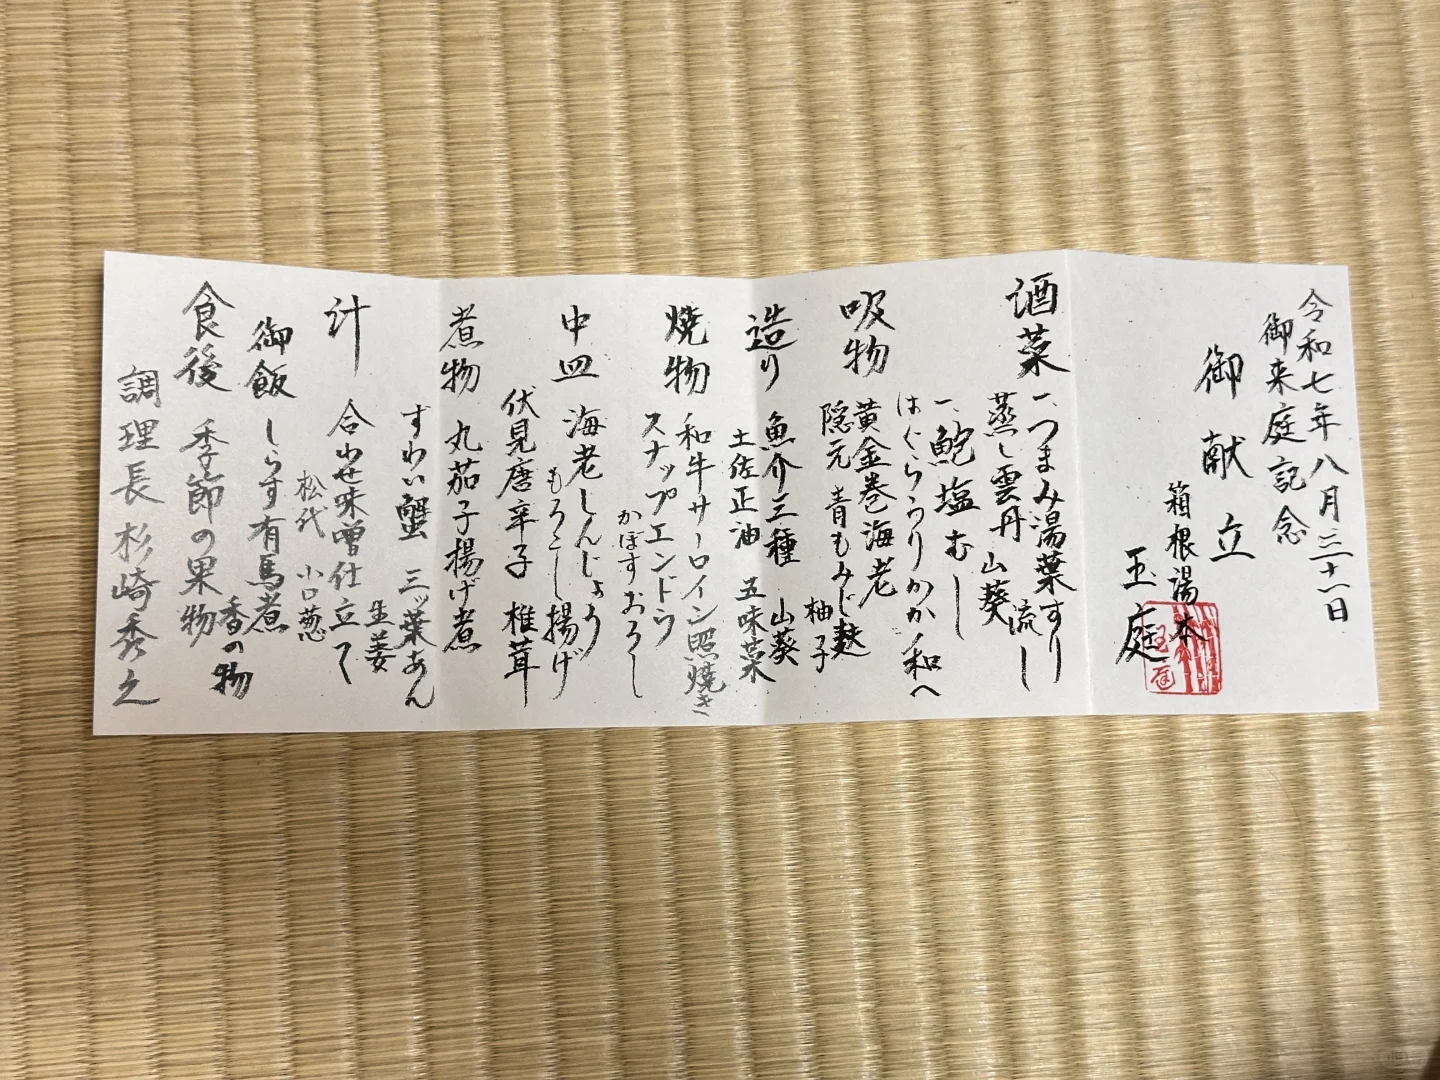 令和七年八月三十一日
御来庭記念
御献立
箱根湯本
玉庭
酒菜
一、つまみ湯葉すり流し
蒸し雲丹 山葵
一、鮑塩むし
はぐらうりかか和へ
吸物
黄金巻海老 柚子
隠元 青もみじ麩
造り
魚介三種 山葵
土佐正油 五味菜
焼物
和牛サーロイン照焼き
スナップエンドウ
かぼすおろし
中皿
海老しんじょう揚げ
もろこし揚げ
伏見唐辛子 椎茸
煮物
丸茄子揚げ煮
すわい蟹 三ッ葉あん
生姜
汁
合わせ味噌仕立て
松代 小口葱
御飯
しらす有馬煮
香の物
食後
季節の果物
調理長 杉崎秀之